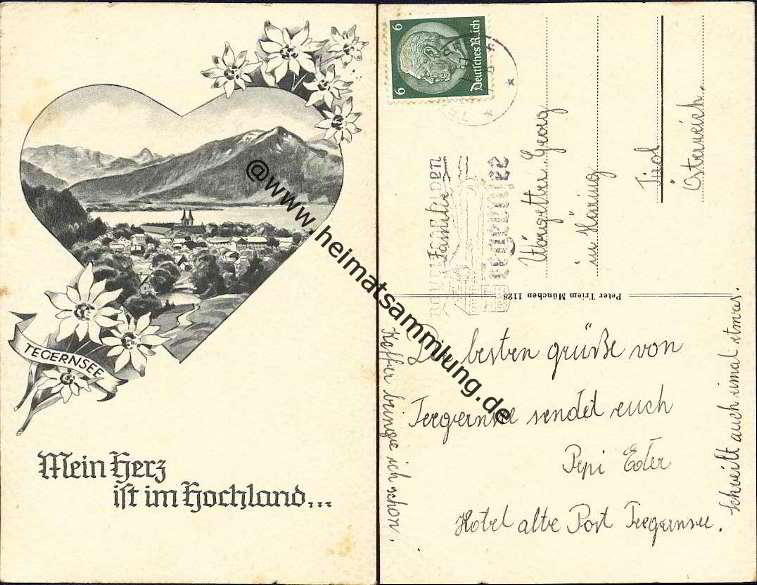 TEGERNSEE
Mein Herz
ist im Hochland...
@www.heimatsammlung.de
Deutsches Reich
6
6
Familie
Georg
in Häring
Tirol
Österreich.
Tegernsee
Peter Triem München 1128
Die besten grüße von
Teegernsee sendet euch
Pepi Eder
Hotel alte Post Teegernsee.
Koffer bringe ich schon.
Schreibt auch einmal etwas.